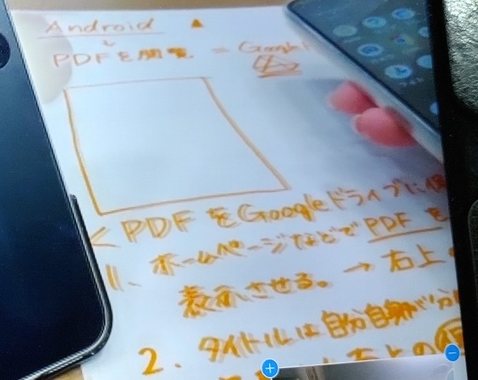 Android
PDFを閲覧 = Googl
< PDFをGoogleドライブに
1. ホームページなどでPDFを
表示させる。→ 右上
2. タイトルは自分自身が分
右上の